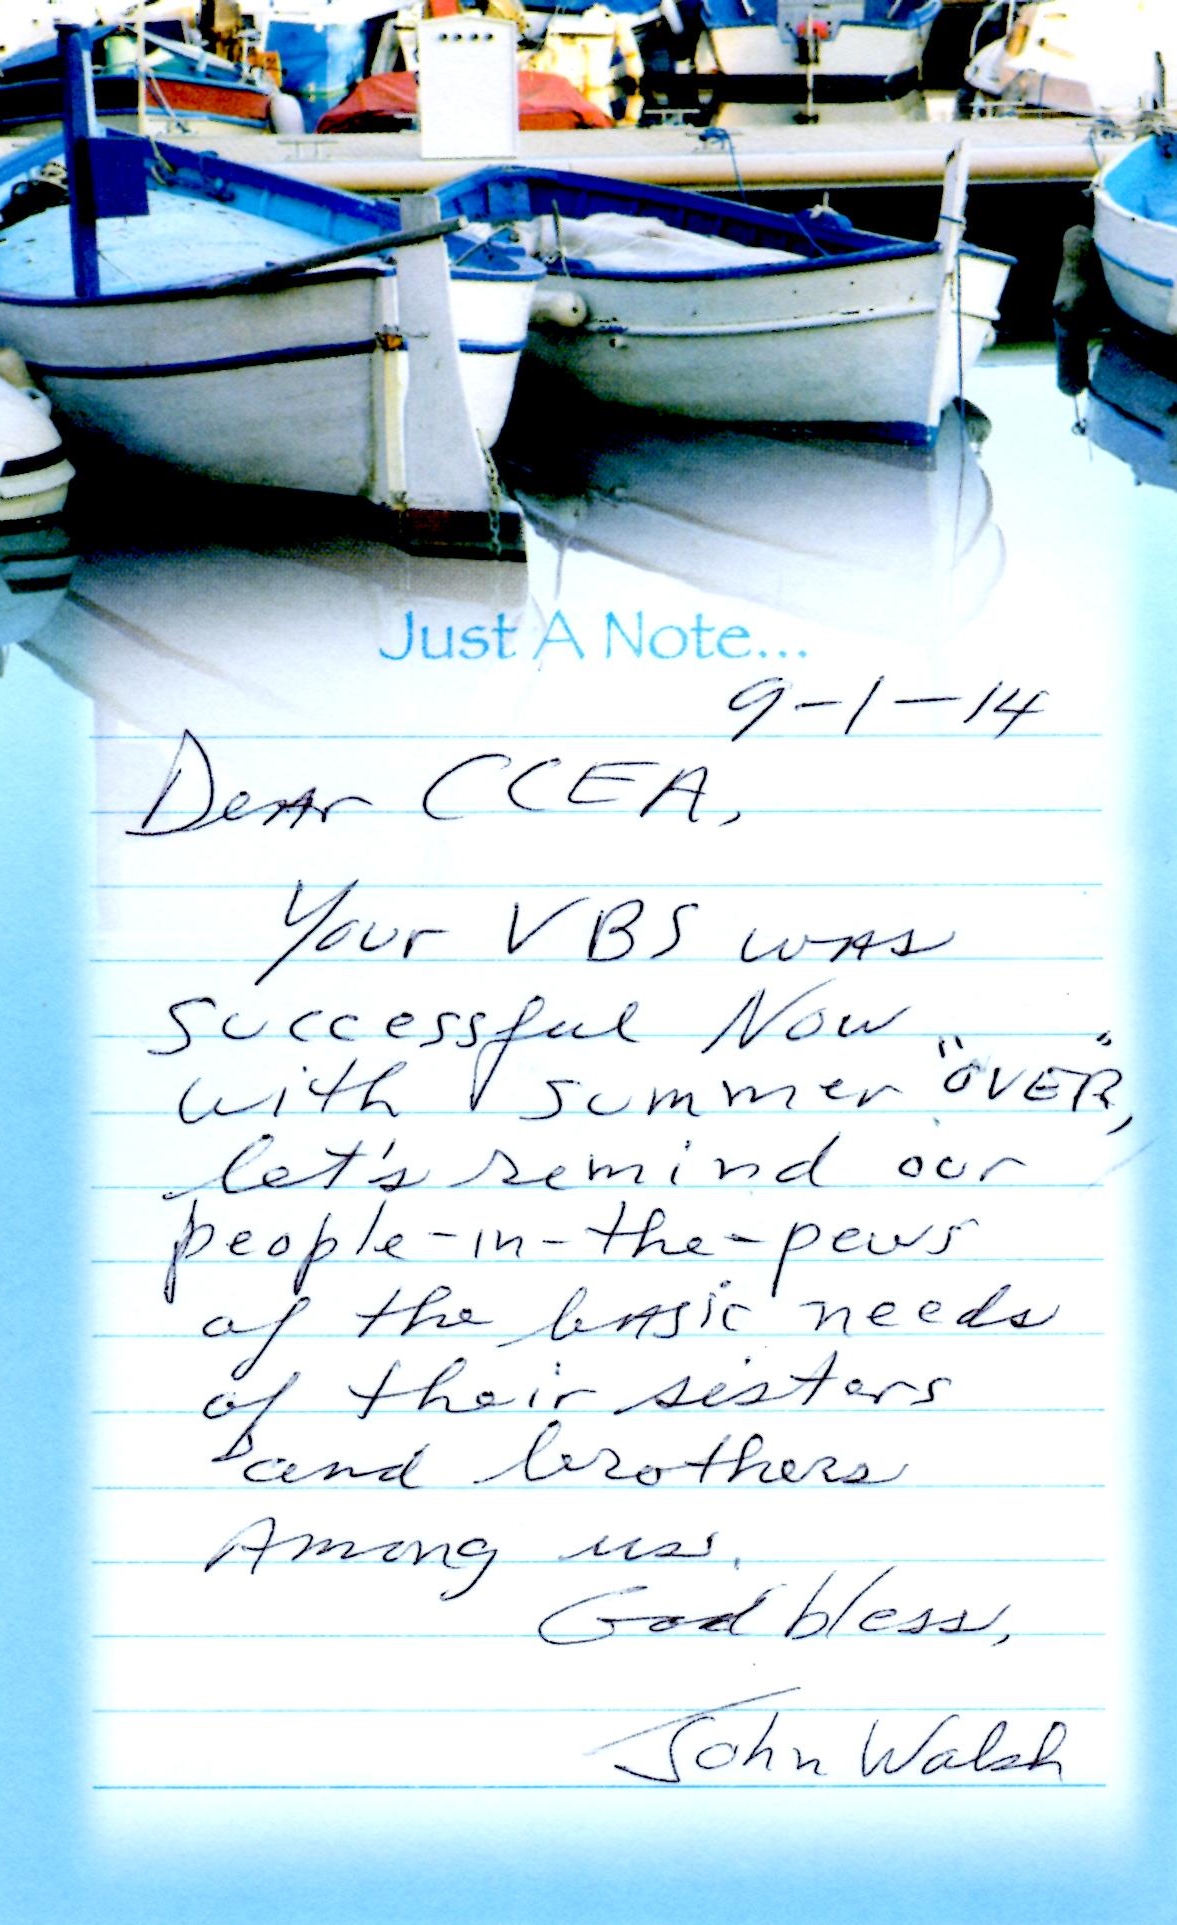 Just A Note...
9-1-14
Dear CCEA,
Your VBS was
successful Now
with summer "OVER",
let's remind our
people-in-the-pews
of the basic needs
of their sisters
and brothers
Among us.
God bless,
John Walsh